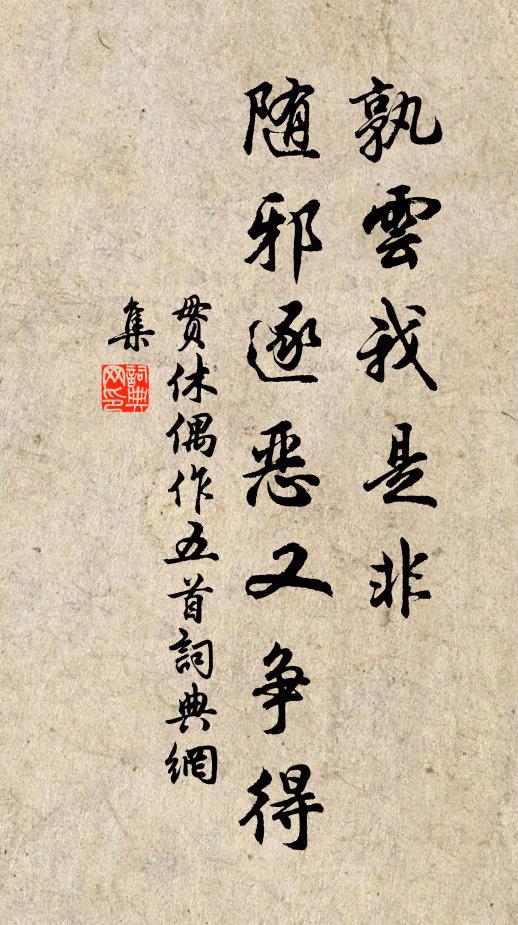 孰雲我是非
随邪逐恶又争得
贯休偶作五首詞典網
集
詞典
网印